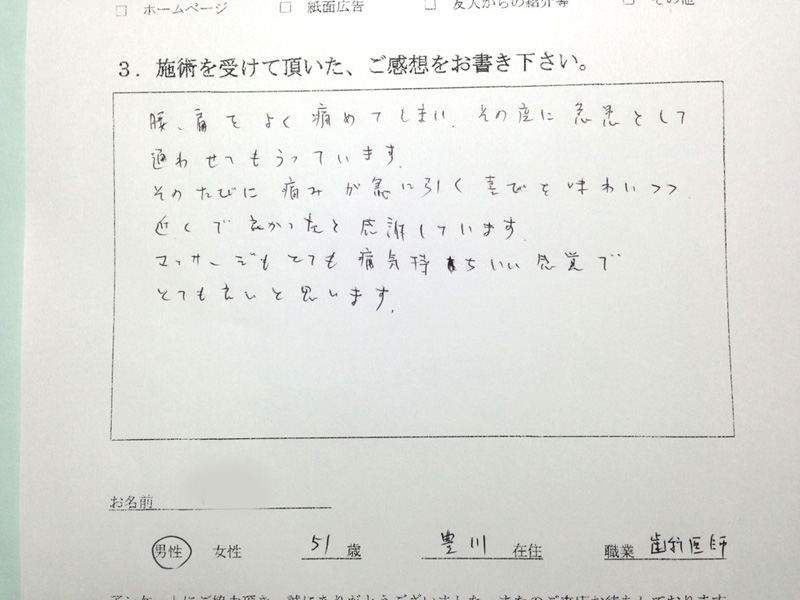 □ ホームページ □ 紙面広告 □ 友人からの紹介等 □ その他
3．施術を受けて頂いた、ご感想をお書き下さい。
腰、肩をよく痛めてしまい、その度に急患として
通わせてもらっています。
そのたびに痛みが急に引く喜びを味わいつつ
近くで良かったと感謝しています。
マッサージもとても痛気持ちいい感覚で
とても良いと思います。
お名前
男性 女性 51歳 豊川在住 職業 歯科医師
アンケートにご協力頂き、誠にありがとうございました。またのご来店お待ちしております